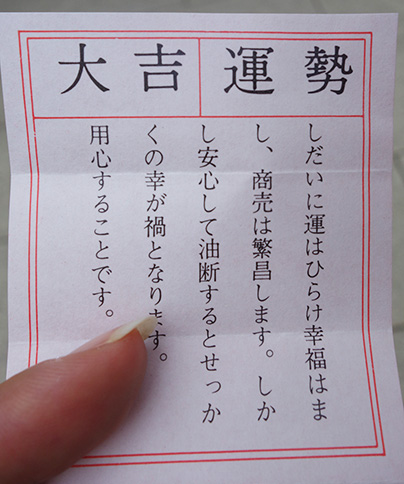 大吉 運勢
しだいに運はひらけ幸福はま
し、商売は繁昌します。しか
し安心して油断するとせっか
くの幸が禍となります。
用心することです。